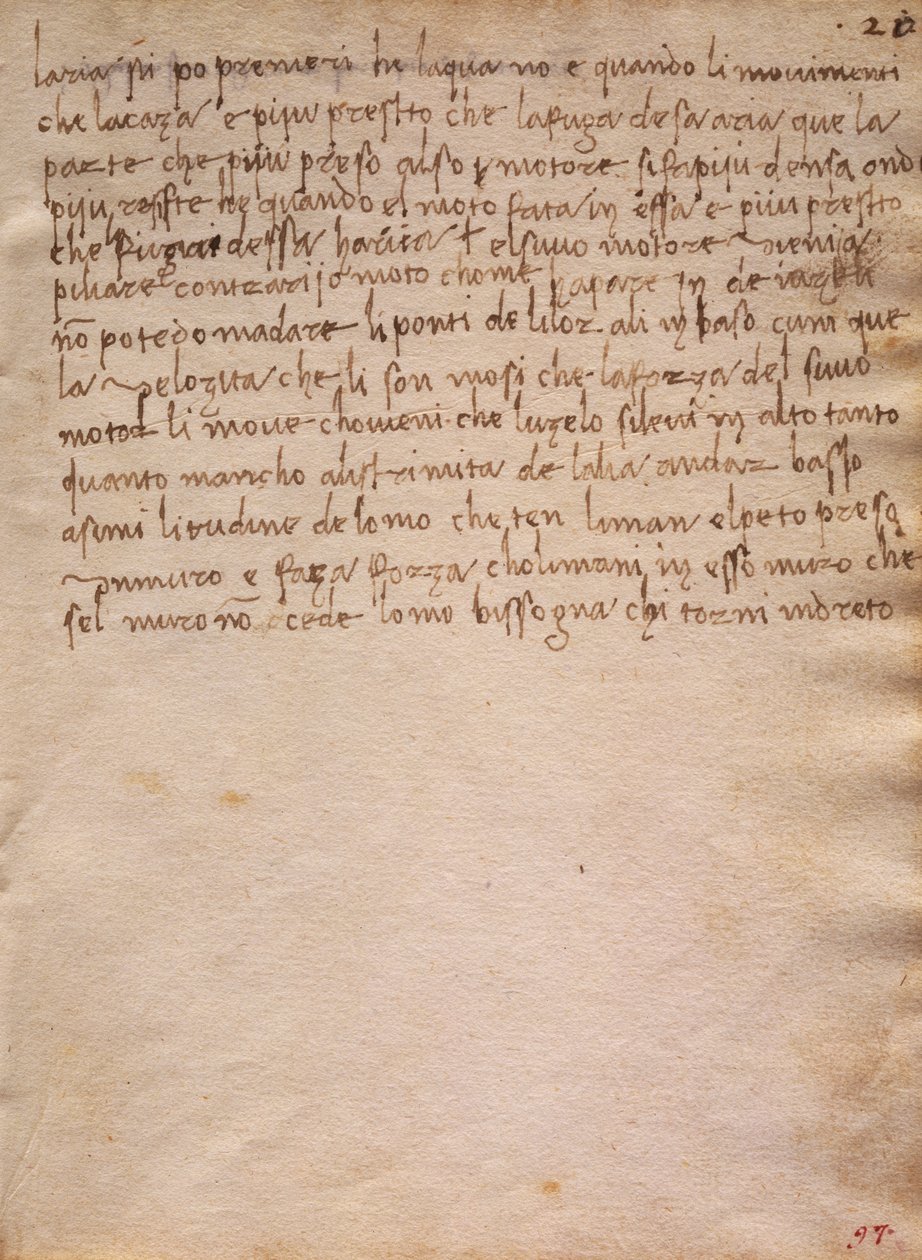 · 212
laria si po premeri he laqua no e quando li movimenti
che lacaza e piju prestto che lafuga desa aria que la
parte che piju preso also motore si fa piju densa ond
piju resste he quando el moto fata in essa e piju prestto
che fugai dessa harira † el suuo motore venia
piliare contrarijo moto chome apare in de
nō potedo madare li ponti de lilor ali in baso cum que
la velozita che li son mosi che laforza del suuo
motor li move choveni che luzelo si levi in alto tanto
quanto mancho alistrimita de lalia andar basso
asimi litudine de lomo che ten liman elpeto preso
vnmuro e faza forza cholimani in esso muro che
sel muro nō cede lomo bissogna chi torni indreto
97·